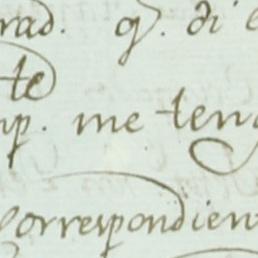 rad. q. di
te
mp. me teng
Correspondient